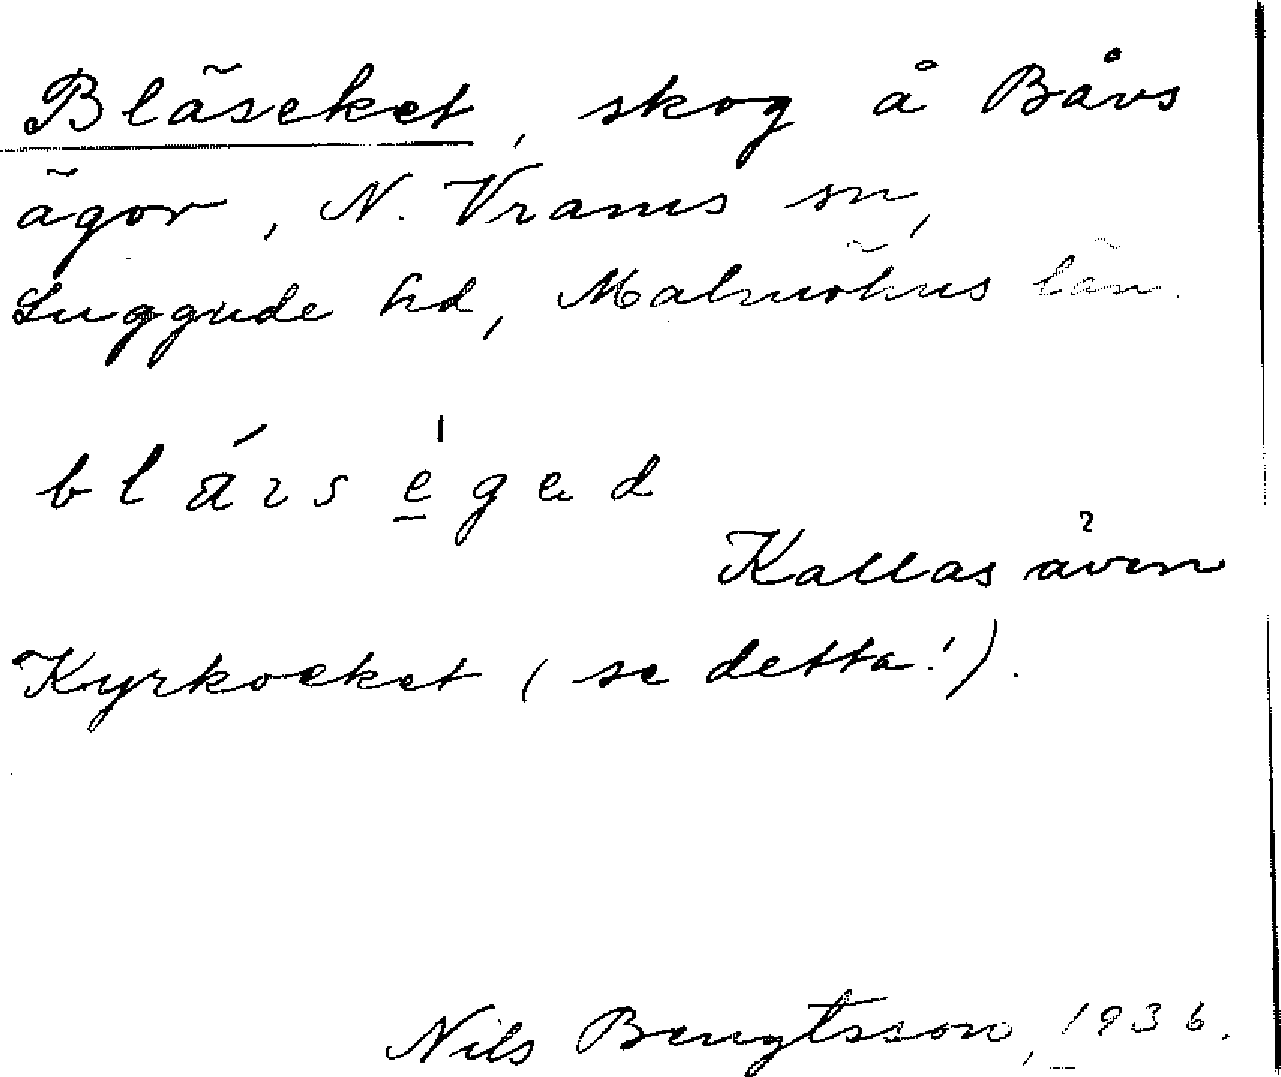 Bläseket, skog å Båvs
ägor, N. Vrams sn,
Luggude hd, Malmöhus län.
blázségad
Kallas även
Kyrkoeket (se detta!).
Nils Bengtsson, 1936.